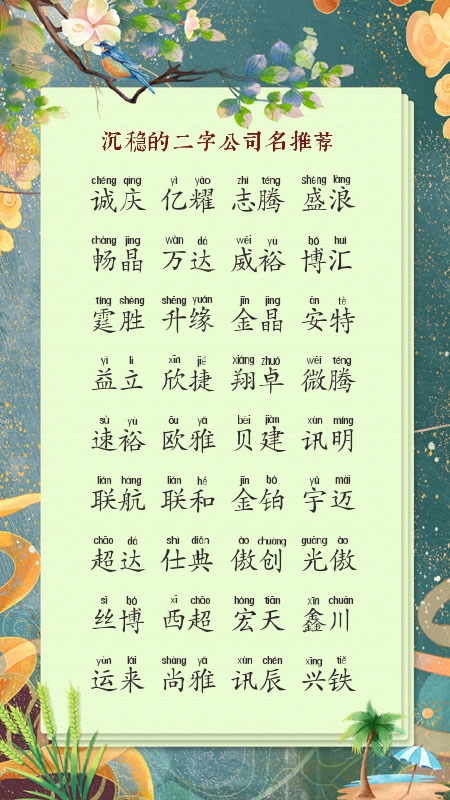 沉稳的二字公司名推荐
chéng qìng yì yào zhì téng shèng làng
诚庆 亿耀 志腾 盛浪
chàng jīng wàn dá wēi yù bó huì
畅晶 万达 威裕 博汇
tíng shèng shēng yuán jīn jīng ān tè
霆胜 升缘 金晶 安特
yì lì xīn jié xiáng zhuó wēi téng
益立 欣捷 翔卓 微腾
sù yù ōu yǎ bèi jiàn xùn míng
速裕 欧雅 贝建 讯明
lián háng lián hé jīn bó yǔ mài
联航 联和 金铂 宇迈
chāo dá shì diǎn ào chuàng guāng ào
超达 仕典 傲创 光傲
sī bó xī chāo hóng tiān xīn chuān
丝博 西超 宏天 鑫川
yùn lái shàng yǎ xùn chén xīng tiě
运来 尚雅 讯辰 兴铁